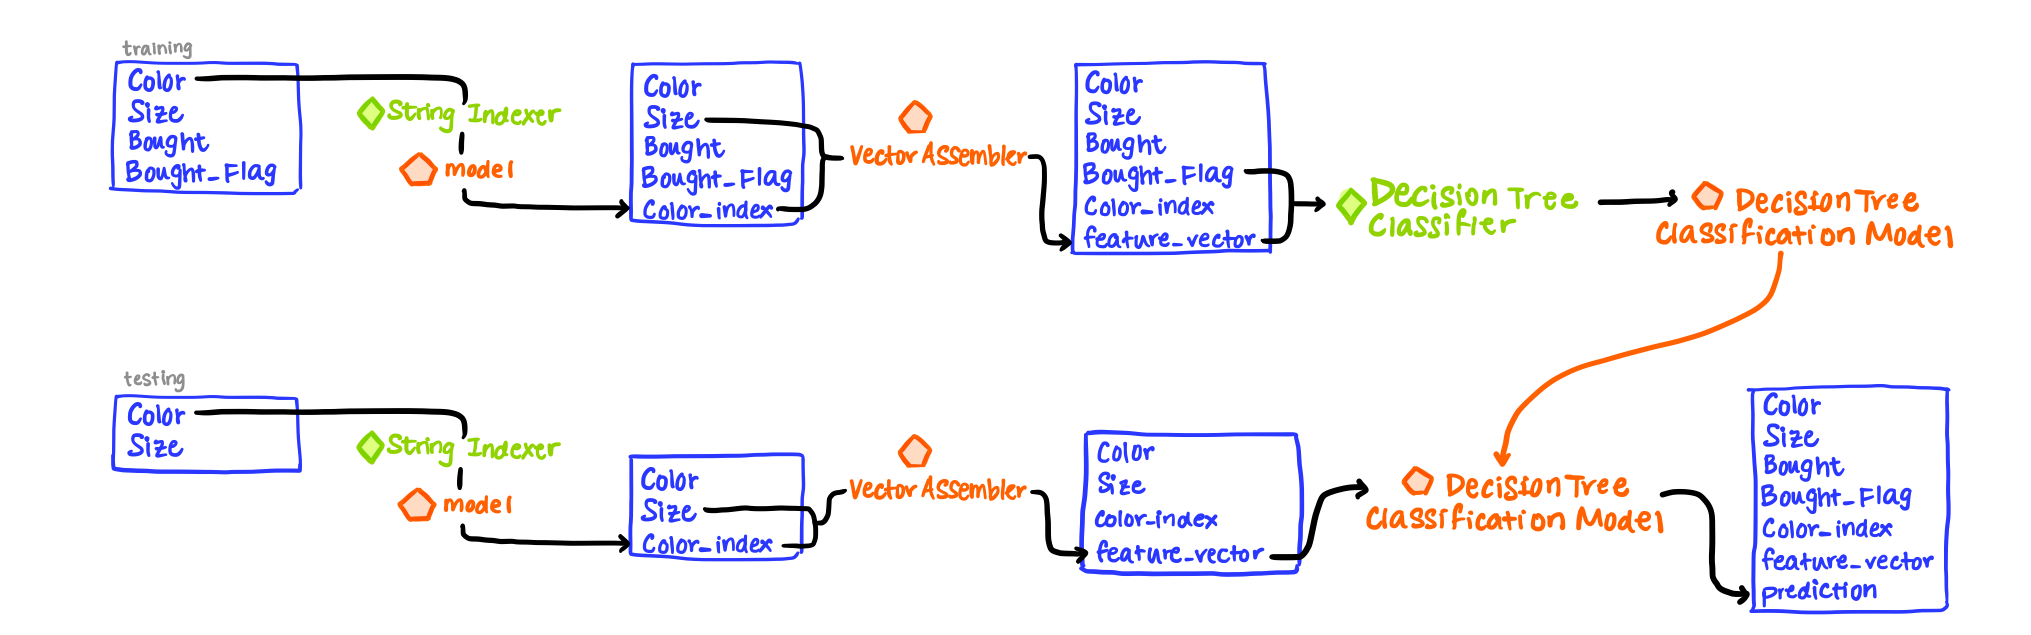 training
Color
Size
Bought
Bought_Flag
String Indexer
model
Color
Size
Bought
Bought_Flag
Color_index
Vector Assembler
Color
Size
Bought
Bought_Flag
Color_index
feature_vector
Decision Tree
Classifier
Decision Tree
Classification Model
testing
Color
Size
String Indexer
model
Color
Size
Color_index
Vector Assembler
Color
Size
color-index
feature_vector
Decision Tree
Classification Model
Color
Size
Bought
Bought_Flag
Color_index
feature_vector
prediction